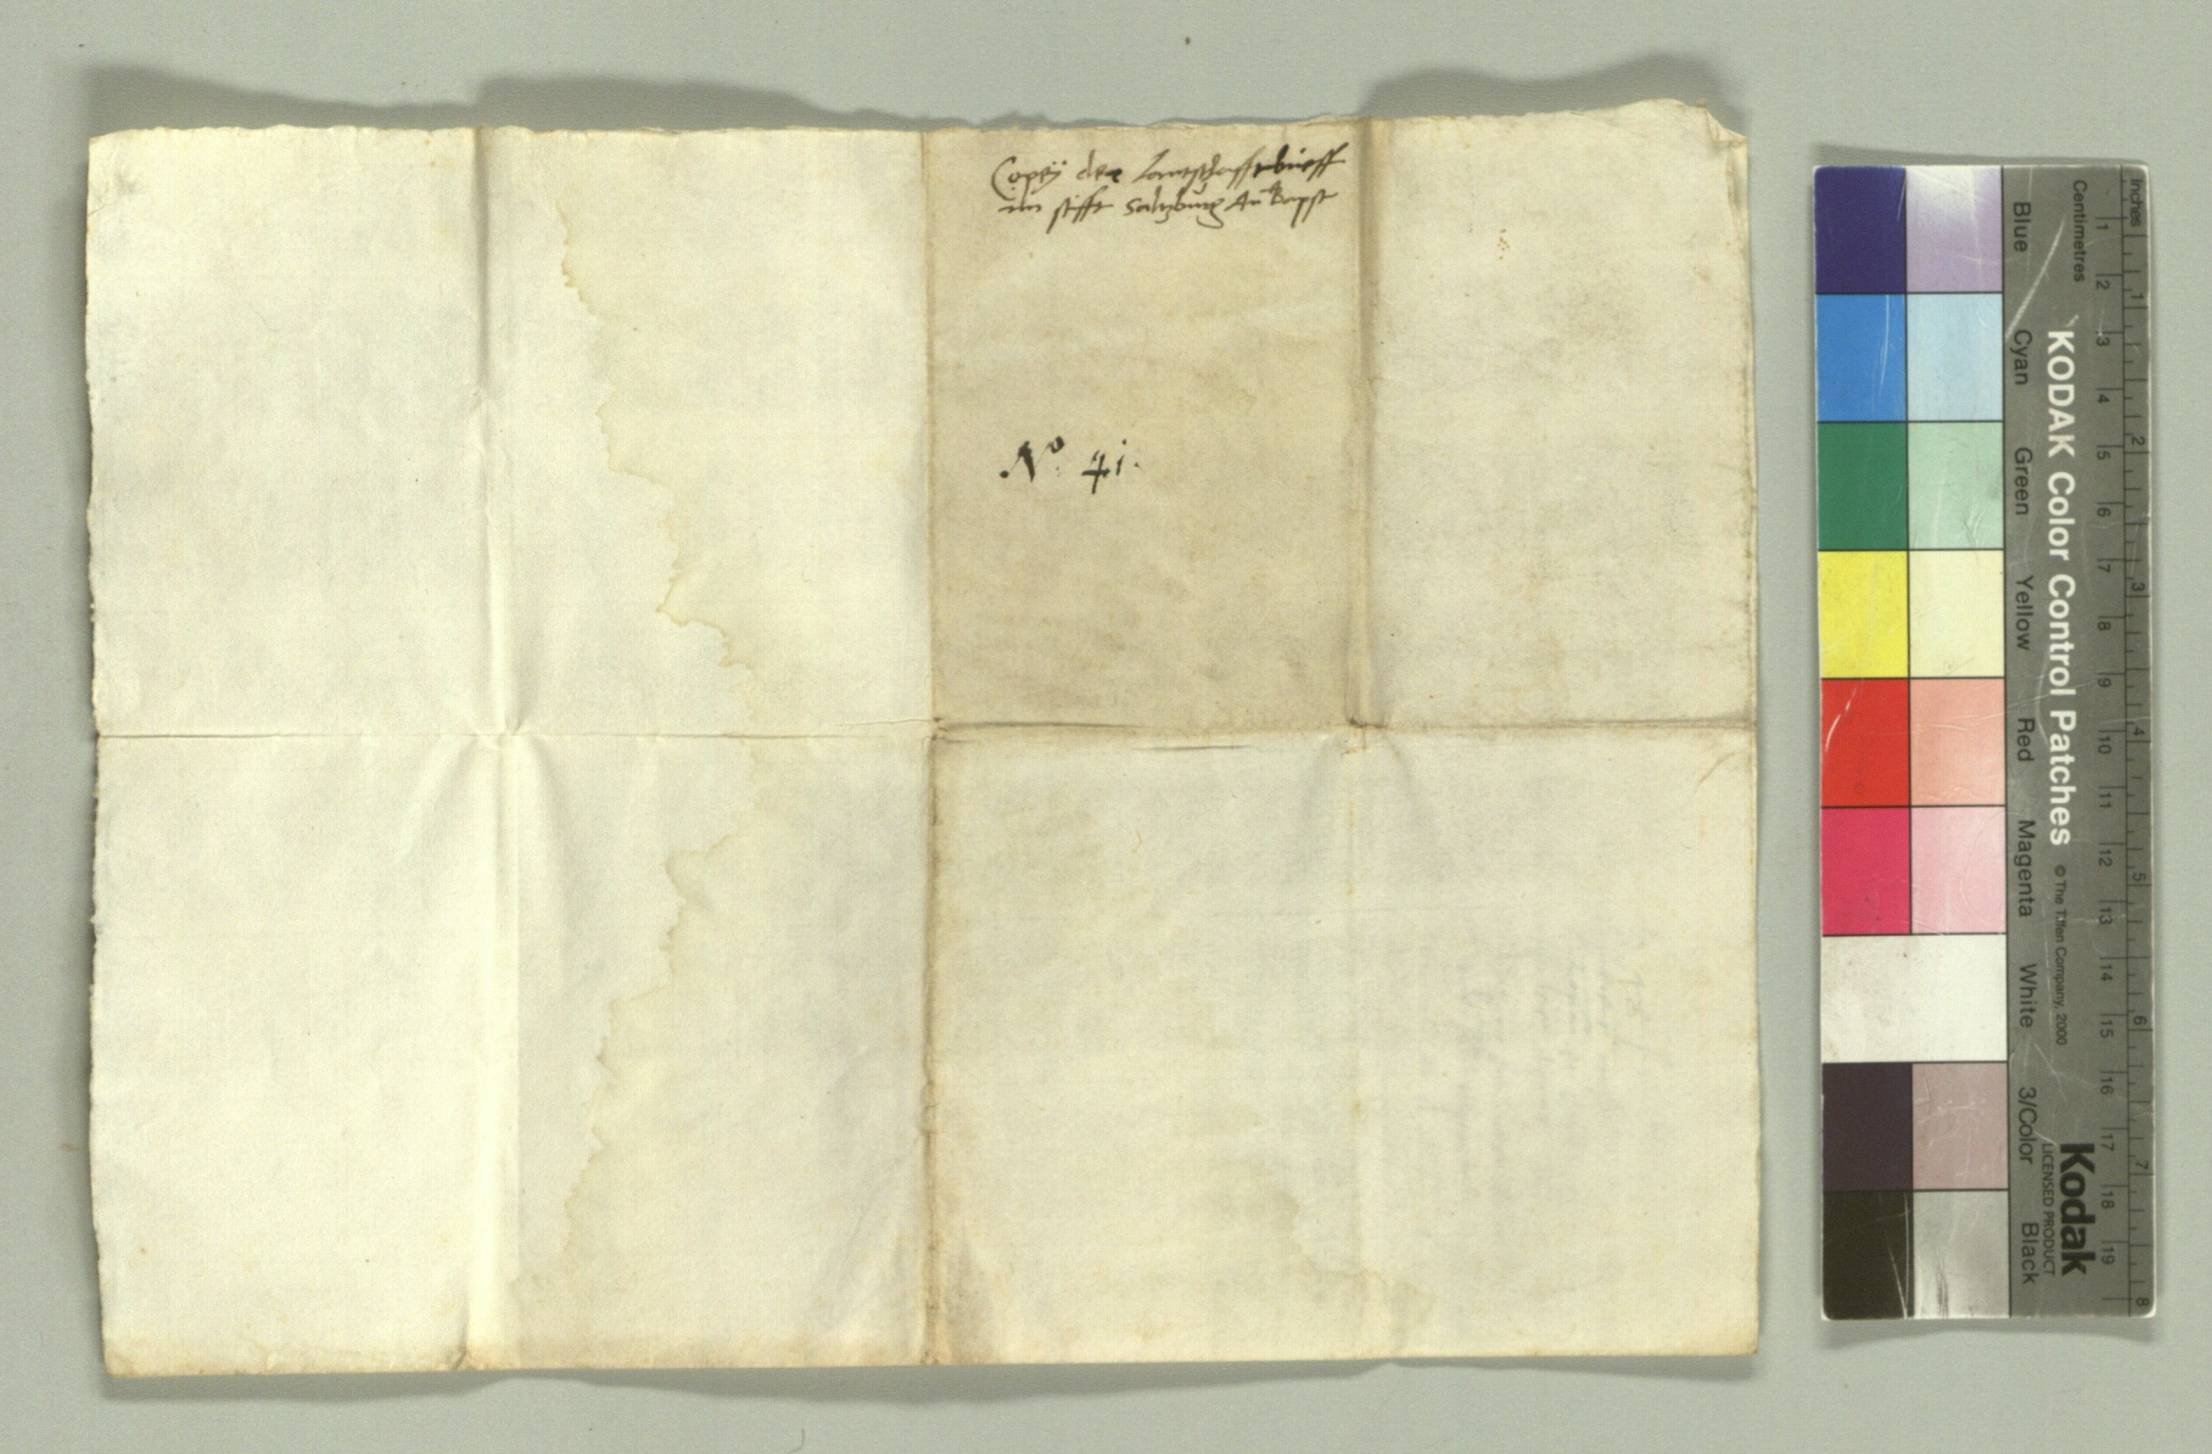 Copey der lantschafft brieff
im stifft Salzburg An Bapst
No 41.
KODAK Color Control Patches © The Tiffen Company, 2000
Kodak
LICENSED PRODUCT
Inches 1 2 3 4 5 6 7 8
Centimetres 1 2 3 4 5 6 7 8 9 10 11 12 13 14 15 16 17 18 19
Blue Cyan Green Yellow Red Magenta White 3/Color Black